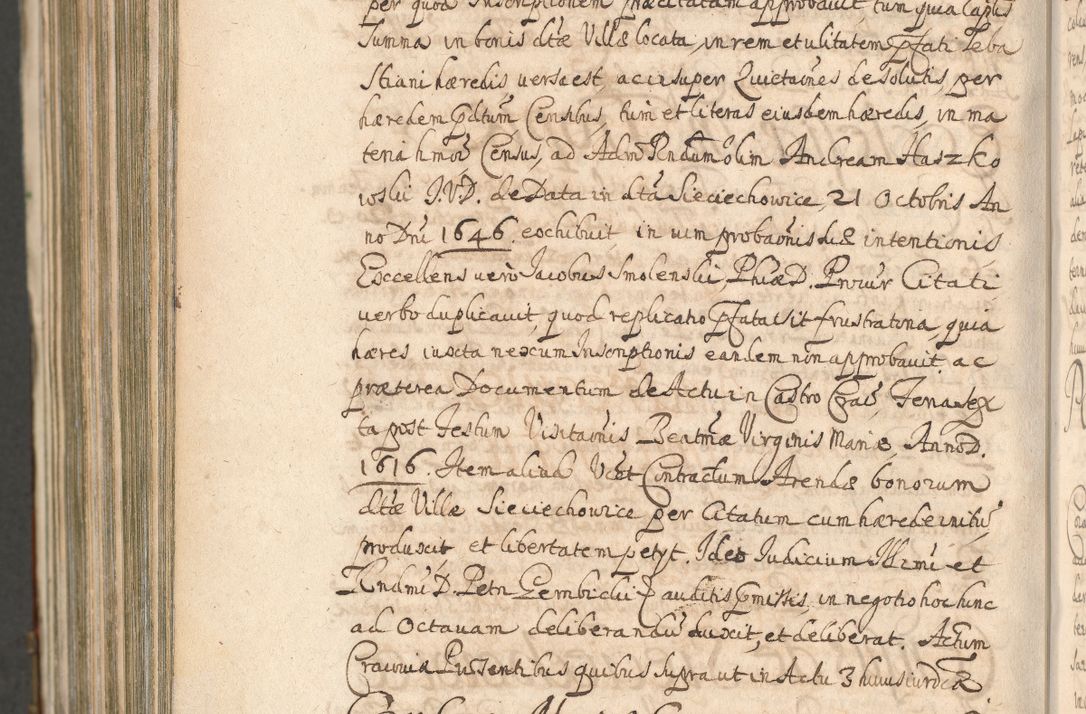 per quod Inscriptionem praecitatam approbavit, tum quia Capłis
Summa in bonis dtae Villae locata, in rem et utilitatem Pfati Seba
stiani haeredis versa est, ac insuper Quietaões de solutis, per
haeredem pdtum Censibus, tum et literas eiusdem haeredis, in ma
teria hmõi Census, ad Adm Rndum olim Andream Haszko
wski J.V.D. de Data in dta Sieciechowice 21 Octobris An
no Dni 1646. exhibuit, in vim probaõnis suae intentionis
Excellens vero Jacobus Smolenski, Phiae D. Procur Citati
verbo duplicavit, quod replicatio Pfata sit frustratoria, quia
haeres iuxta nexum Inscriptionis eandem non approbavit, ac
praeterea Documentum de Actu in Castro Crac, Feria sex
ta post Festum Visitaõnis Beatmae Virginis Mariae, Anno D.
1616. Item aliud Vdt Contractum Arendae bonorum
dtae Villae Sieciechowice per Citatum cum haerede initu
produxit et libertatem petyt. Ideo Judicium Illrmi et
Rndmi D. Petri Gembicki P auditis pmissis, in negotio hoc hinc
ad Octavam deliberandu duxit, et deliberat. Actum
Cracoviae Pńsentibus quibus supra ut in Actu 3 huius iurdcae